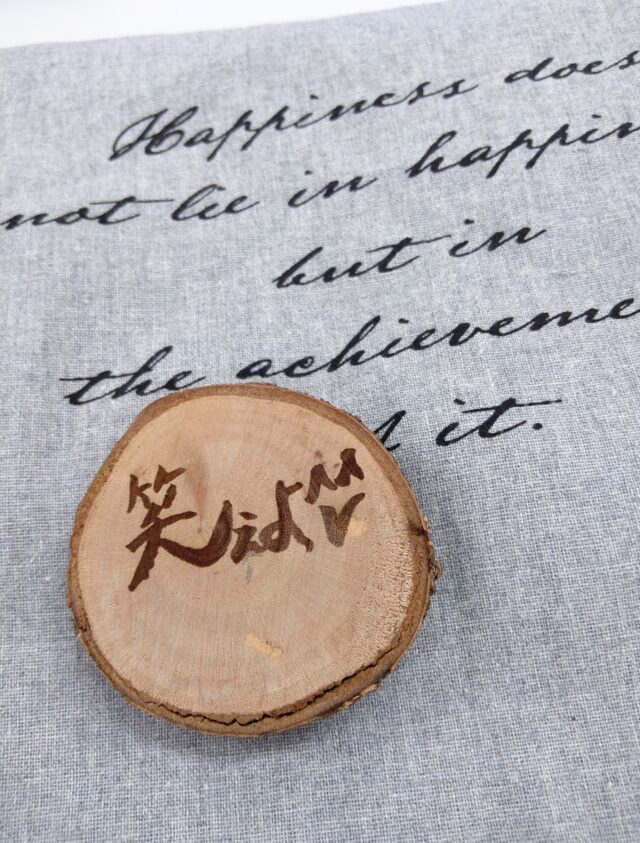 Happiness does
not lie in happin
but in
the achieveme
it.
笑